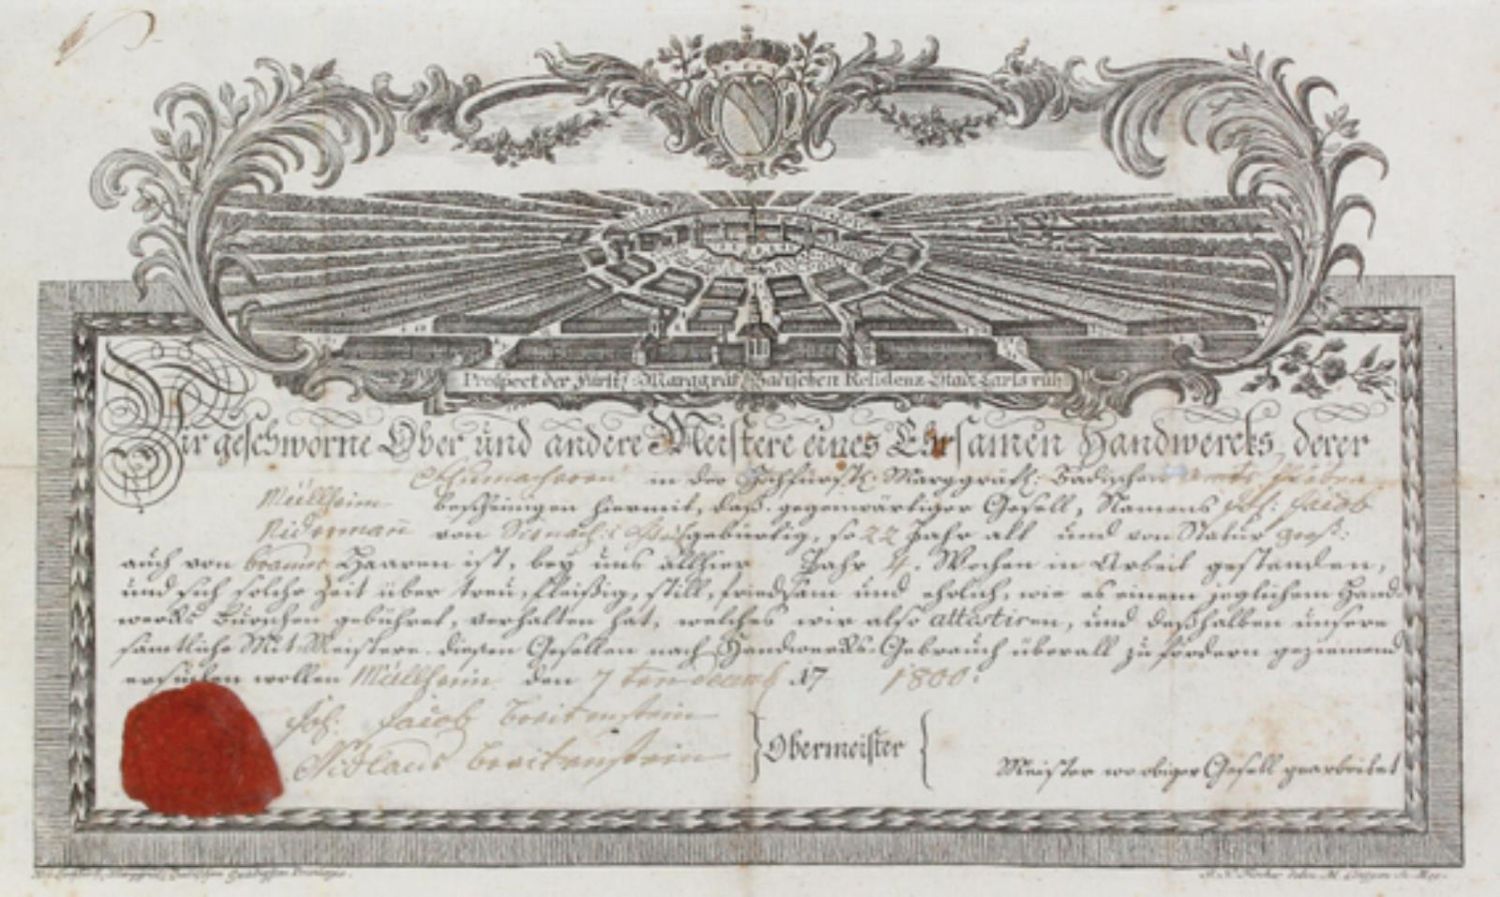 Prospect der Fürstl. Marggräf. Badischen Residenz Stadt Carls ruh
Wir geschworne Ober und andere Meistere eines Ehrsamen Handwercks derer
Schumacheren in der Hochfürstl: Marggräfl: Badischen
Müllheim bescheinigen hiermit, daß gegenwärtiger Gesell, Namens Joh: Jacob
Nidermañ von gebürtig, so 22 Jahr alt und von Statur groß:
auch von braunen Haaren ist, bey uns allhier Jahr 4. Wochen in Arbeit gestanden,
und sich solche Zeit über treu, fleißig, still, friedsam und ehrlich, wie es einem jeglichem Hand-
wercks Burschen gebühret, verhalten hat, welches wir also attestiren, und deßhalben unsere
sämtliche Mit-Meistere diesen Gesellen nach Handwercks-Gebrauch überall zu fördern geziemend
ersuchen wollen Müllheim den 7 ten decemb 17 1800:
Joh: Jacob Breitenstein
Nicklaus Breitenstein
Obermeister
Meister wo obiger Gesell gearbeitet